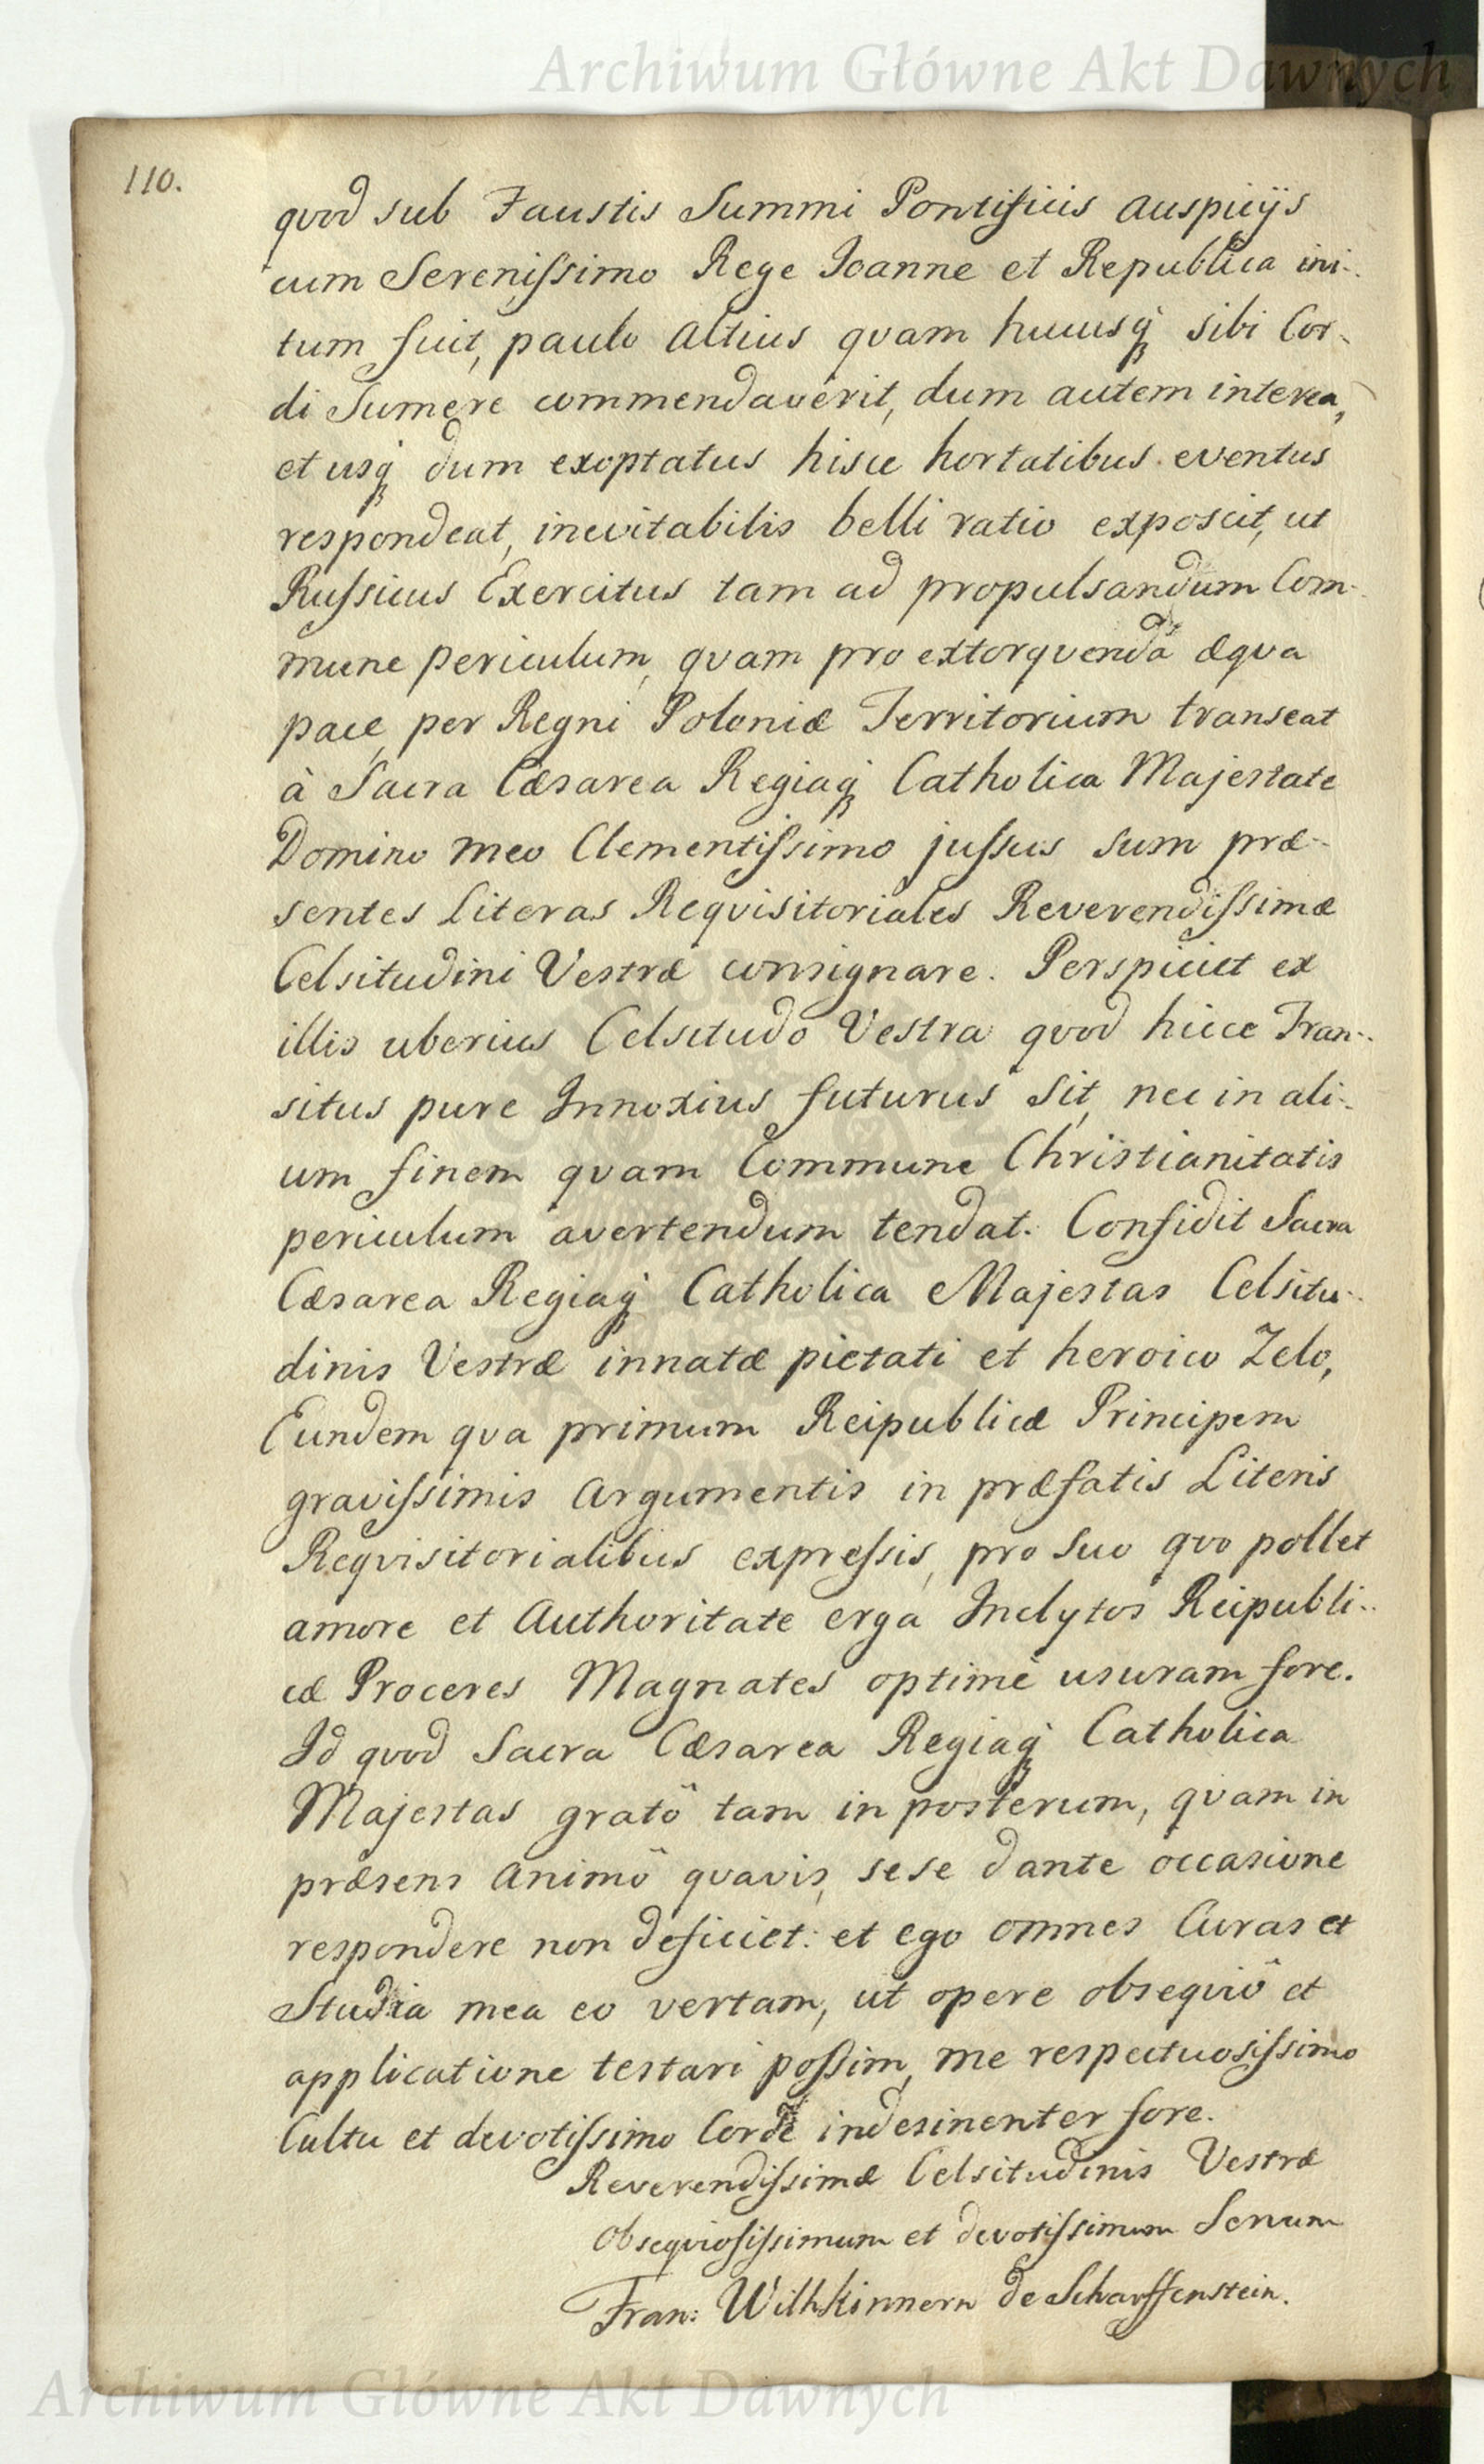 Archiwum Główne Akt Dawnych
110.
quod sub Faustis Summi Pontificis auspicijs
cum Serenissimo Rege Joanne et Republica ini-
tum fuit, paulo altius quam hucusq́ sibi Cor-
di Sumere commendaverit, dum autem interea,
et usq́ dum exoptatus hisce hortatibus eventus
respondeat, inevitabilis belli ratio exposcit, ut
Russicus Exercitus tam ad propulsandum Com-
mune periculum, quam pro extorquenda æqua
pace, per Regni Poloniæ Territorium transeat
à Sacra Cæsarea Regiaq́ Catholica Majestate
Domino meo Clementissimo jussus sum præ-
sentes Literas Requisitoriales Reverendissimæ
Celsitudini Vestræ consignare. Perspiciet ex
illis uberius Celsitudo Vestra quod hicce Tran-
situs pure Innoxius futurus sit, nec in ali-
um finem quam Commune Christianitatis
periculum avertendum tendat. Confidit Sacra
Cæsarea Regiaq́ Catholica Majestas Celsitu-
dinis Vestræ innatæ pietati et heroico Zelo,
Eundem qua primum Reipublicæ Principem
gravissimis Argumentis in præfatis Literis
Requisitorialibus expressis, pro suo quo pollet
amore et Authoritate erga Inclytos Reipubli-
cæ Proceres Magnates optimè usuram fore.
Id quod Sacra Cæsarea Regiaq́ Catholica
Majestas gratô tam in posterum, quam in
præsens animô quavis, sese dante occasione
respondere non deficiet: et ego omnes Curas et
Studia mea eo vertam, ut opere obsequiô et
applicatione testari possim, me respectuosissimo
Cultu et devotissimo Corde indesinenter fore.
Reverendissimæ Celsitudinis Vestræ
Obsequiosissimum et devotissimum Servum
Fran: Wilh Kinnern de Scharffenstein.
Archiwum Główne Akt Dawnych